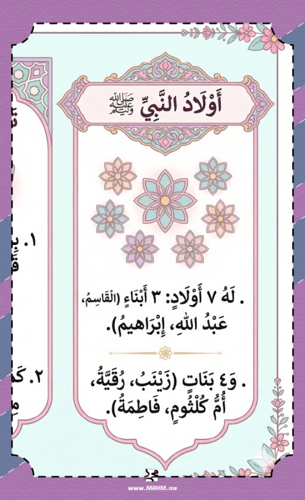 أَوْلَادُ النَّبِيِّ ﷺ
. لَهُ ٧ أَوْلَادٍ: ٣ أَبْنَاءٍ (الْقَاسِمُ،
عَبْدُ اللهِ، إِبْرَاهِيمُ).
. وَ٤ بَنَاتٍ (زَيْنَبُ، رُقَيَّةُ،
أُمُّ كُلْثُومٍ، فَاطِمَةُ).
١.
٢.
www.MRHM.me